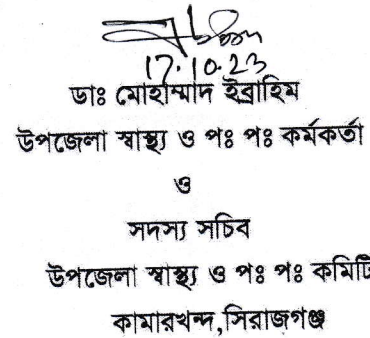 17.10.23
ডাঃ মোহাম্মাদ ইব্রাহিম
উপজেলা স্বাস্থ্য ও পঃ পঃ কর্মকর্তা
ও
সদস্য সচিব
উপজেলা স্বাস্থ্য ও পঃ পঃ কমিটি
কামারখন্দ,সিরাজগঞ্জ